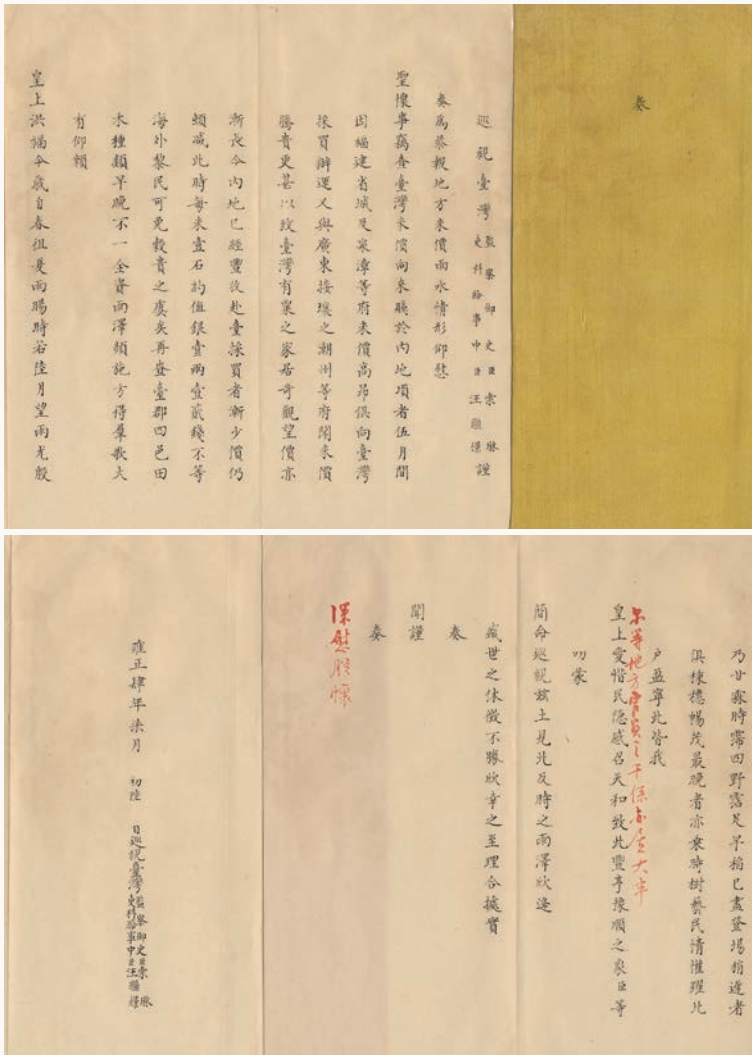 奏
巡視臺灣監察御史臣索琳
吏科給事中臣汪繼憬謹
奏為恭報地方米價雨水情形仰慰
聖懷事竊查臺灣米價向來賤於內地項者伍月間
因福建省城及泉漳等府米價高昂俱向臺灣
採買辦運又與廣東接壤之潮州等府聞米價
騰貴更甚以致臺灣有粟之家居奇觀望價亦
漸長今內地已經豐收赴臺採買者漸少價仍
頓減此時每米壹石約值銀壹兩壹貳錢不等
海外黎民可免穀貴之虞矣再查臺郡四邑田
禾種類早晚不一全資雨澤頻施方得羣歌大
有仰賴
皇上洪福今歲自春徂夏雨暘時若陸月望雨尤殷
乃甘霖時霈四野霑足早稻已盡登場稍遲者
俱棟穗暢茂最晚者亦乘時樹藝民情懽躍比
戶盈寧此皆我
爾等地方官員之干係亦居大半
皇上愛惜民隱感召天和致此豐亨豫順之象臣等
叨蒙
簡命巡視茲土見此及時之雨澤欣逢
盛世之休徵不勝欣幸之至理合據實
奏
聞謹
奏
深慰朕懷
雍正肆年柒月 初陸 日巡視臺灣監察御史臣索琳
吏科給事中臣汪繼憬